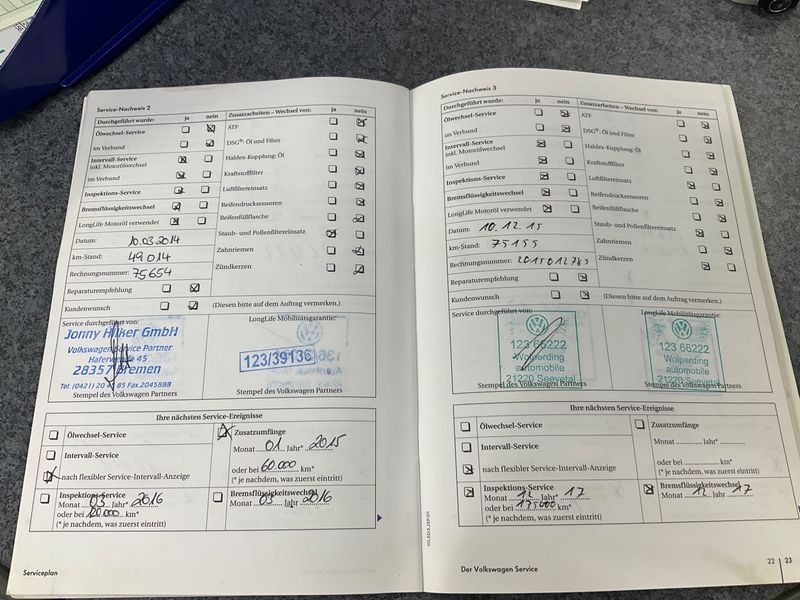 Service-Nachweis 2
Durchgeführt wurde: ja nein
Ölwechsel-Service
im Verbund
Intervall-Service
inkl. Motorölwechsel
im Verbund
Inspektions-Service
Bremsflüssigkeitswechsel
LongLife Motoröl verwendet
Datum: 10.03.2014
km-Stand: 49014
Rechnungsnummer: 75654
Reparaturempfehlung
Kundenwunsch
Zusatzarbeiten – Wechsel von: ja nein
ATF
DSG®: Öl und Filter
Haldex-Kupplung: Öl
Kraftstofffilter
Luftfiltereinsatz
Reifendrucksensoren
Reifenfüllflasche
Staub- und Pollenfiltereinsatz
Zahnriemen
Zündkerzen
(Diesen bitte auf dem Auftrag vermerken.)
Service durchgeführt von:
Volkswagen Service Partner
28357 Bremen
Stempel des Volkswagen Partners
LongLife Mobilitätsgarantie:
123/39136
Stempel des Volkswagen Partners
Ihre nächsten Service-Ereignisse
Ölwechsel-Service
Intervall-Service
nach flexibler Service-Intervall-Anzeige
Inspektions-Service
Monat 03 Jahr* 2016
oder bei 120.000 km*
(* je nachdem, was zuerst eintritt)
Zusatzumfänge
Monat 01 Jahr* 2015
oder bei 60.000 km*
(* je nachdem, was zuerst eintritt)
Bremsflüssigkeitswechsel
Monat 03 Jahr 2016
Serviceplan
Service-Nachweis 3
Durchgeführt wurde: ja nein
Ölwechsel-Service
im Verbund
Intervall-Service
inkl. Motorölwechsel
im Verbund
Inspektions-Service
Bremsflüssigkeitswechsel
LongLife Motoröl verwendet
Datum: 10.12.15
km-Stand: 75155
Rechnungsnummer: 2015012785
Reparaturempfehlung
Kundenwunsch
Zusatzarbeiten – Wechsel von: ja nein
ATF
DSG®: Öl und Filter
Haldex-Kupplung: Öl
Kraftstofffilter
Luftfiltereinsatz
Reifendrucksensoren
Reifenfüllflasche
Staub- und Pollenfiltereinsatz
Zahnriemen
Zündkerzen
(Diesen bitte auf dem Auftrag vermerken.)
Service durchgeführt von:
123 66222
Wolperding
automobile
21220 Seevetal
Stempel des Volkswagen Partners
LongLife Mobilitätsgarantie:
123 66222
Wolperding
automobile
21220 Seevetal
Stempel des Volkswagen Partners
Ihre nächsten Service-Ereignisse
Ölwechsel-Service
Intervall-Service
nach flexibler Service-Intervall-Anzeige
Inspektions-Service
Monat 12 Jahr* 17
oder bei km*
(* je nachdem, was zuerst eintritt)
Zusatzumfänge
Monat Jahr*
oder bei km*
(* je nachdem, was zuerst eintritt)
Bremsflüssigkeitswechsel
Monat 12 Jahr 17
Der Volkswagen Service
22 | 23